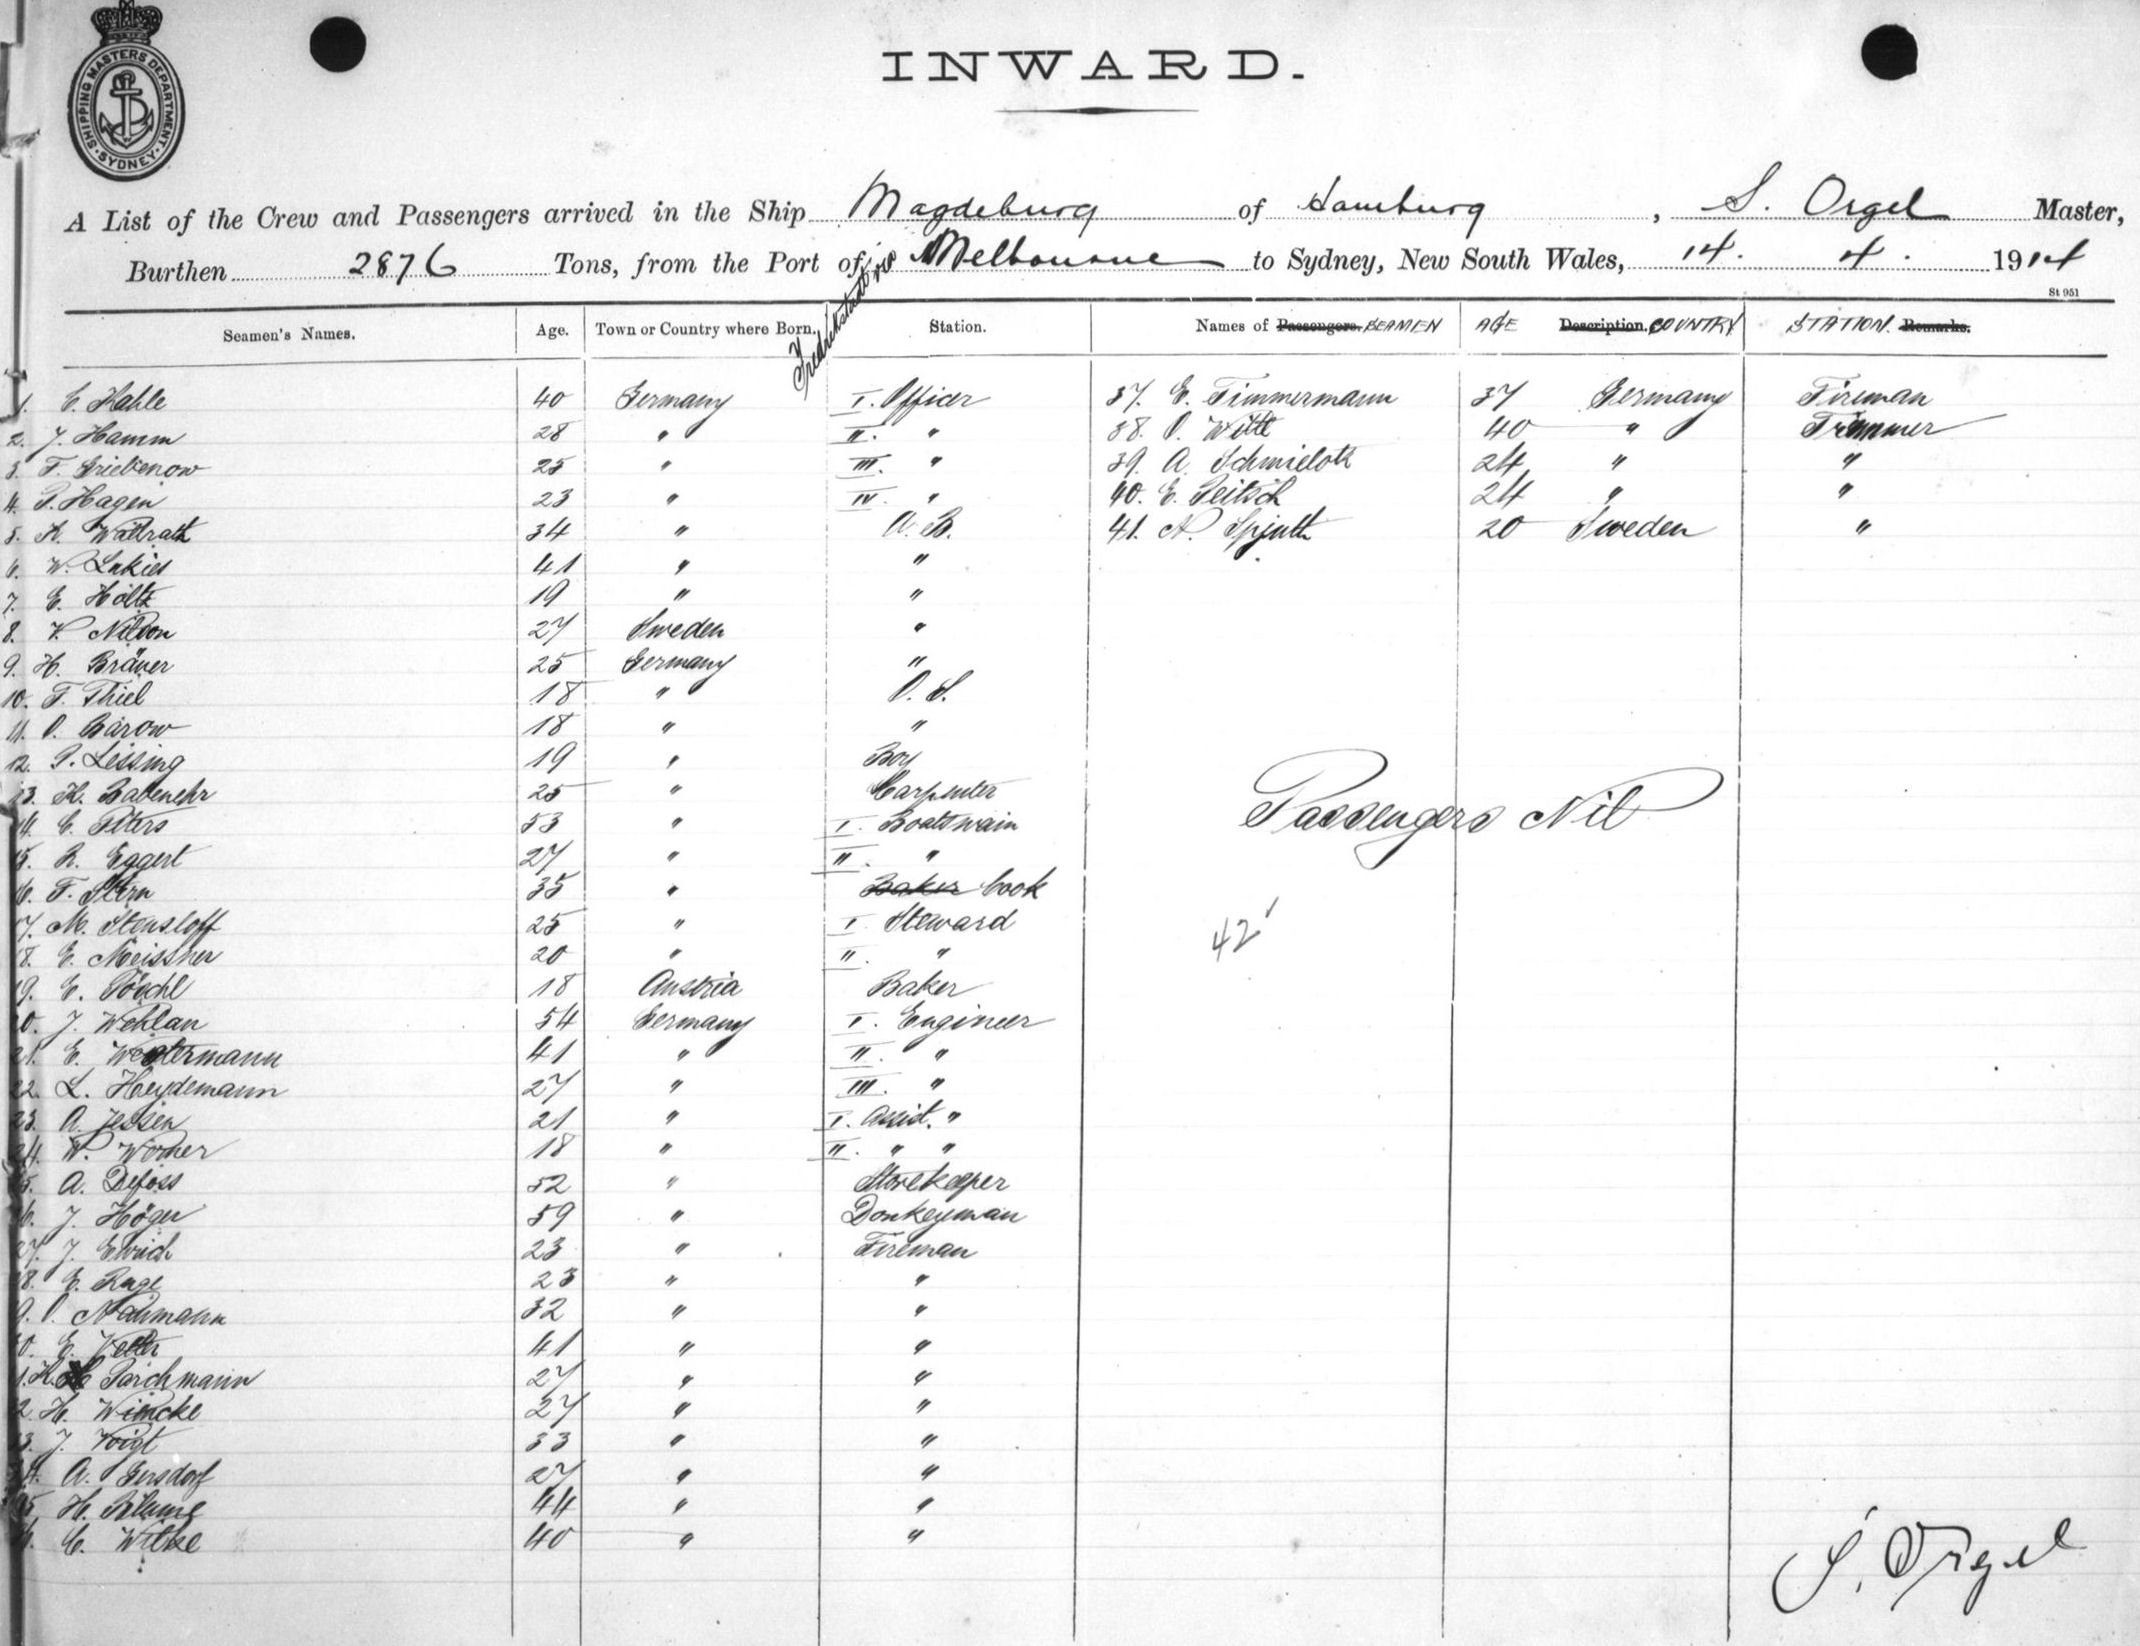 SHIPPING MASTERS DEPARTMENT. SYDNEY.
INWARD.
A List of the Crew and Passengers arrived in the Ship Magdeburg of Hamburg, S. Orgel Master,
Burthen 2876 Tons, from the Port of Fredrikstadt via Melbourne to Sydney, New South Wales, 14. 4. 1914
St 951
Seamen's Names. Age. Town or Country where Born. Station. Names of Passengers. SEAMEN AGE Description. COUNTRY STATION. Remarks.
1. C. Kahle 40 Germany I. Officer 37. E. Timmermann 37 Germany Fireman
2. J. Hamm 28 " II. " 38. O. Witt 40 " Trimmer
3. F. Griebenow 25 " III. " 39. A. 24 " "
4. P. Hagen 23 " IV. " 40. E. Peitsch 24 " "
5. A. Wallrath 34 " A. B. 41. N. Spjuth 20 Sweden "
6. W. Lukies 41 " "
7. E. Holtz 19 " "
8. V. Nilson 27 Sweden "
9. H. Bräuer 25 Germany "
10. F. Thiel 18 " O. S.
11. O. Barow 18 " "
12. P. Lessing 19 " Boy
13. K. Babenehr 25 " Carpenter
14. C. Peters 53 " I. Boatswain
15. R. Eggert 27 " II. "
16. F. Stern 35 " Baker Cook
17. M. Stensloff 25 " I Steward
18. E. Meissner 20 " II. "
19. E. Pöschl 18 Austria Baker
20. J. Wehlan 54 Germany I. Engineer
21. E. Westermann 41 " II. "
22. L. Heydemann 27 " III. "
23. A. Jessen 21 " I. Assist. "
24. W. Worner 18 " II. " "
25. A. 52 " Storekeeper
26. J. Höger 59 " Donkeyman
27. J. 23 " Fireman
28. E. Ruge 23 " "
29. O. Naumann 32 " "
30. E. Vetter 41 " "
31. H. Parchmann 27 " "
32. H. Wiencke 27 " "
33. J. Voigt 33 " "
34. A. Gersdorf 27 " "
35. H. Blume 44 " "
36. C. Wilke 40 " "
Passengers Nil
42
S. Orgel